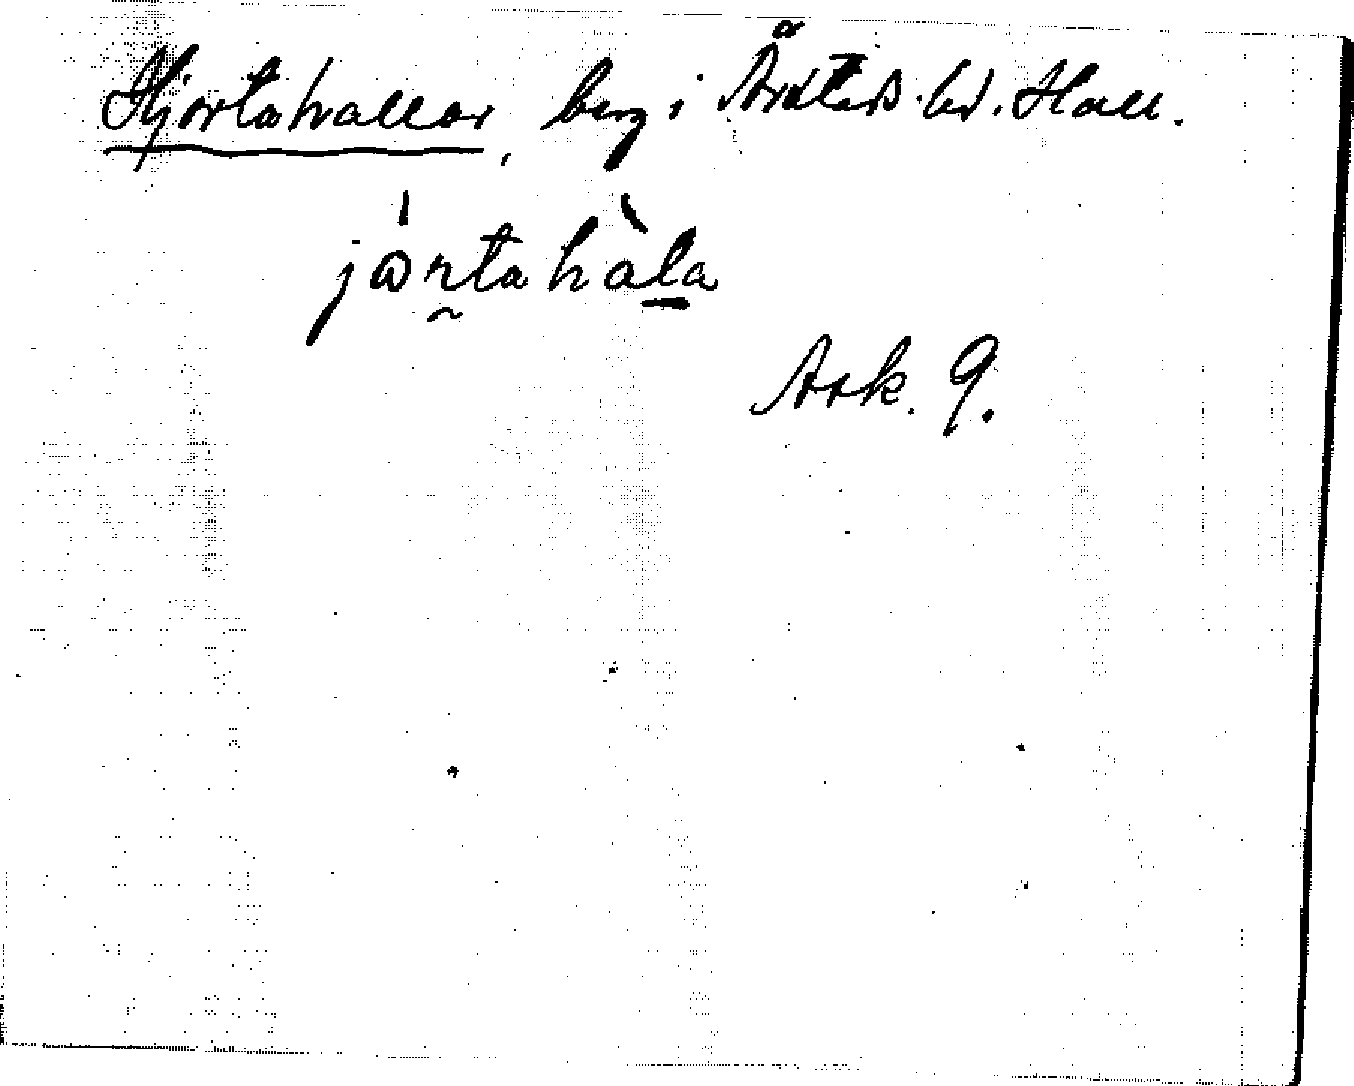 Hjortahallar, berg i Årstads hd. Hall.
jɷrtahàla
Ark. 9.